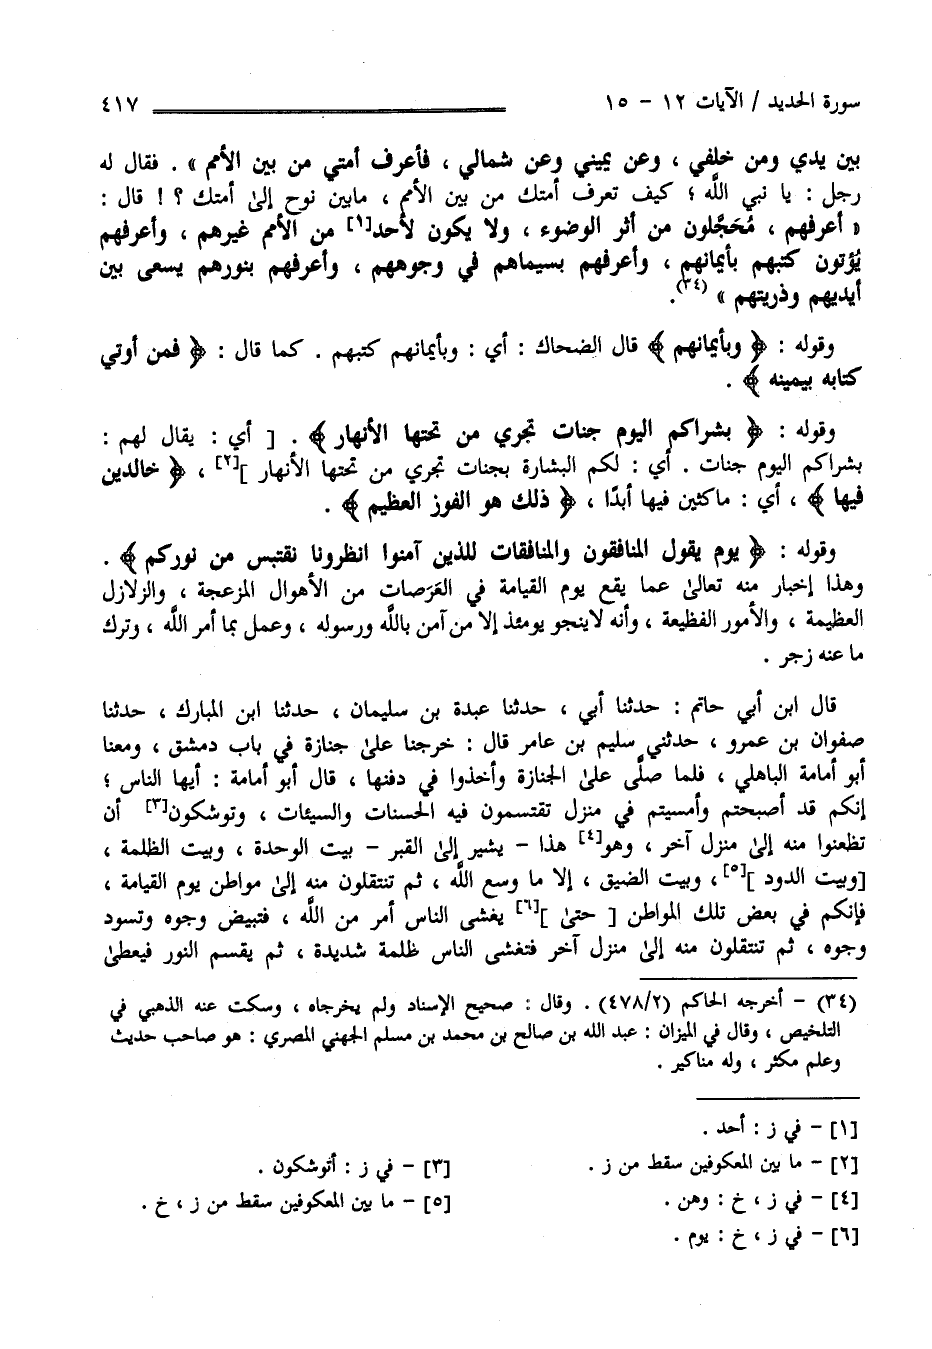 سورة الحديد / الآيات ١٢ - ١٥ ٤١٧
بين يدي ومن خلفي ، وعن يميني وعن شمالي ، فأعرف أمتي من بين الأمم » . فقال له
رجل : يا نبي اللَّه ؛ كيف تعرف أمتك من بين الأمم ، مابين نوح إلىٰ أمتك ؟ ! قال :
« أعرفهم ، مُحَجَّلون من أثر الوضوء ، ولا يكون لأحد[١] من الأمم غيرهم ، وأعرفهم
يُؤتون كتبهم بأيمانهم ، وأعرفهم بسيماهم في وجوههم ، وأعرفهم بنورهم يسعى بين
أيديهم وذريتهم » (٣٤).
وقوله : ﴿ وبأيمانهم ﴾ قال الضحاك : أي : وبأيمانهم كتبهم . كما قال : ﴿ فمن أوتي
كتابه بيمينه ﴾ .
وقوله : ﴿ بشراكم اليوم جنات تجري من تحتها الأنهار ﴾ . [ أي : يقال لهم :
بشراكم اليوم جنات . أي : لكم البشارة بجنات تجري من تحتها الأنهار ][٢] ، ﴿ خالدين
فيها ﴾ ، أي : ماكثين فيها أبدًا ، ﴿ ذلك هو الفوز العظيم ﴾ .
وقوله : ﴿ يوم يقول المنافقون والمنافقات للذين آمنوا انظرونا نقتبس من نوركم ﴾ .
وهذا إخبار منه تعالىٰ عما يقع يوم القيامة في العَرَصات من الأهوال المزعجة ، والزلازل
العظيمة ، والأمور الفظيعة ، وأنه لاينجو يومئذ إلا من آمن باللَّه ورسوله ، وعمل بما أمر اللَّه ، وترك
ما عنه زجر .
قال ابن أبي حاتم : حدثنا أبي ، حدثنا عبدة بن سليمان ، حدثنا ابن المبارك ، حدثنا
صفوان بن عمرو ، حدثني سليم بن عامر قال : خرجنا علىٰ جنازة في باب دمشق ، ومعنا
أبو أمامة الباهلي ، فلما صلَّى علىٰ الجنازة وأخذوا في دفنها ، قال أبو أمامة : أيها الناس ؛
إنكم قد أصبحتم وأمسيتم في منزل تقتسمون فيه الحسنات والسيئات ، وتوشكون[٣] أن
تظعنوا منه إلىٰ منزل آخر ، وهو[٤] هذا - يشير إلىٰ القبر - بيت الوحدة ، وبيت الظلمة ،
[وبيت الدود ][٥] ، وبيت الضيق ، إلا ما وسع اللَّه ، ثم تنتقلون منه إلىٰ مواطن يوم القيامة ،
فإنكم في بعض تلك المواطن [ حتىٰ ][٦] يغشى الناس أمر من اللَّه ، فتبيض وجوه وتسود
وجوه ، ثم تنتقلون منه إلىٰ منزل آخر فتغشى الناس ظلمة شديدة ، ثم يقسم النور فيعطىٰ
(٣٤) - أخرجه الحاكم (٤٧٨/٢) . وقال : صحيح الإسناد ولم يخرجاه ، وسكت عنه الذهبي في
التلخيص ، وقال في الميزان : عبد الله بن صالح بن محمد بن مسلم الجهني المصري : هو صاحب حديث
وعلم مكثر ، وله مناكير .
[١] - في ز : أحد .
[٢] - ما بين المعكوفين سقط من ز . [٣] - في ز : أتوشكون .
[٤] - في ز ، خ : وهن . [٥] - ما بين المعكوفين سقط من ز ، خ .
[٦] - في ز ، خ : يوم .